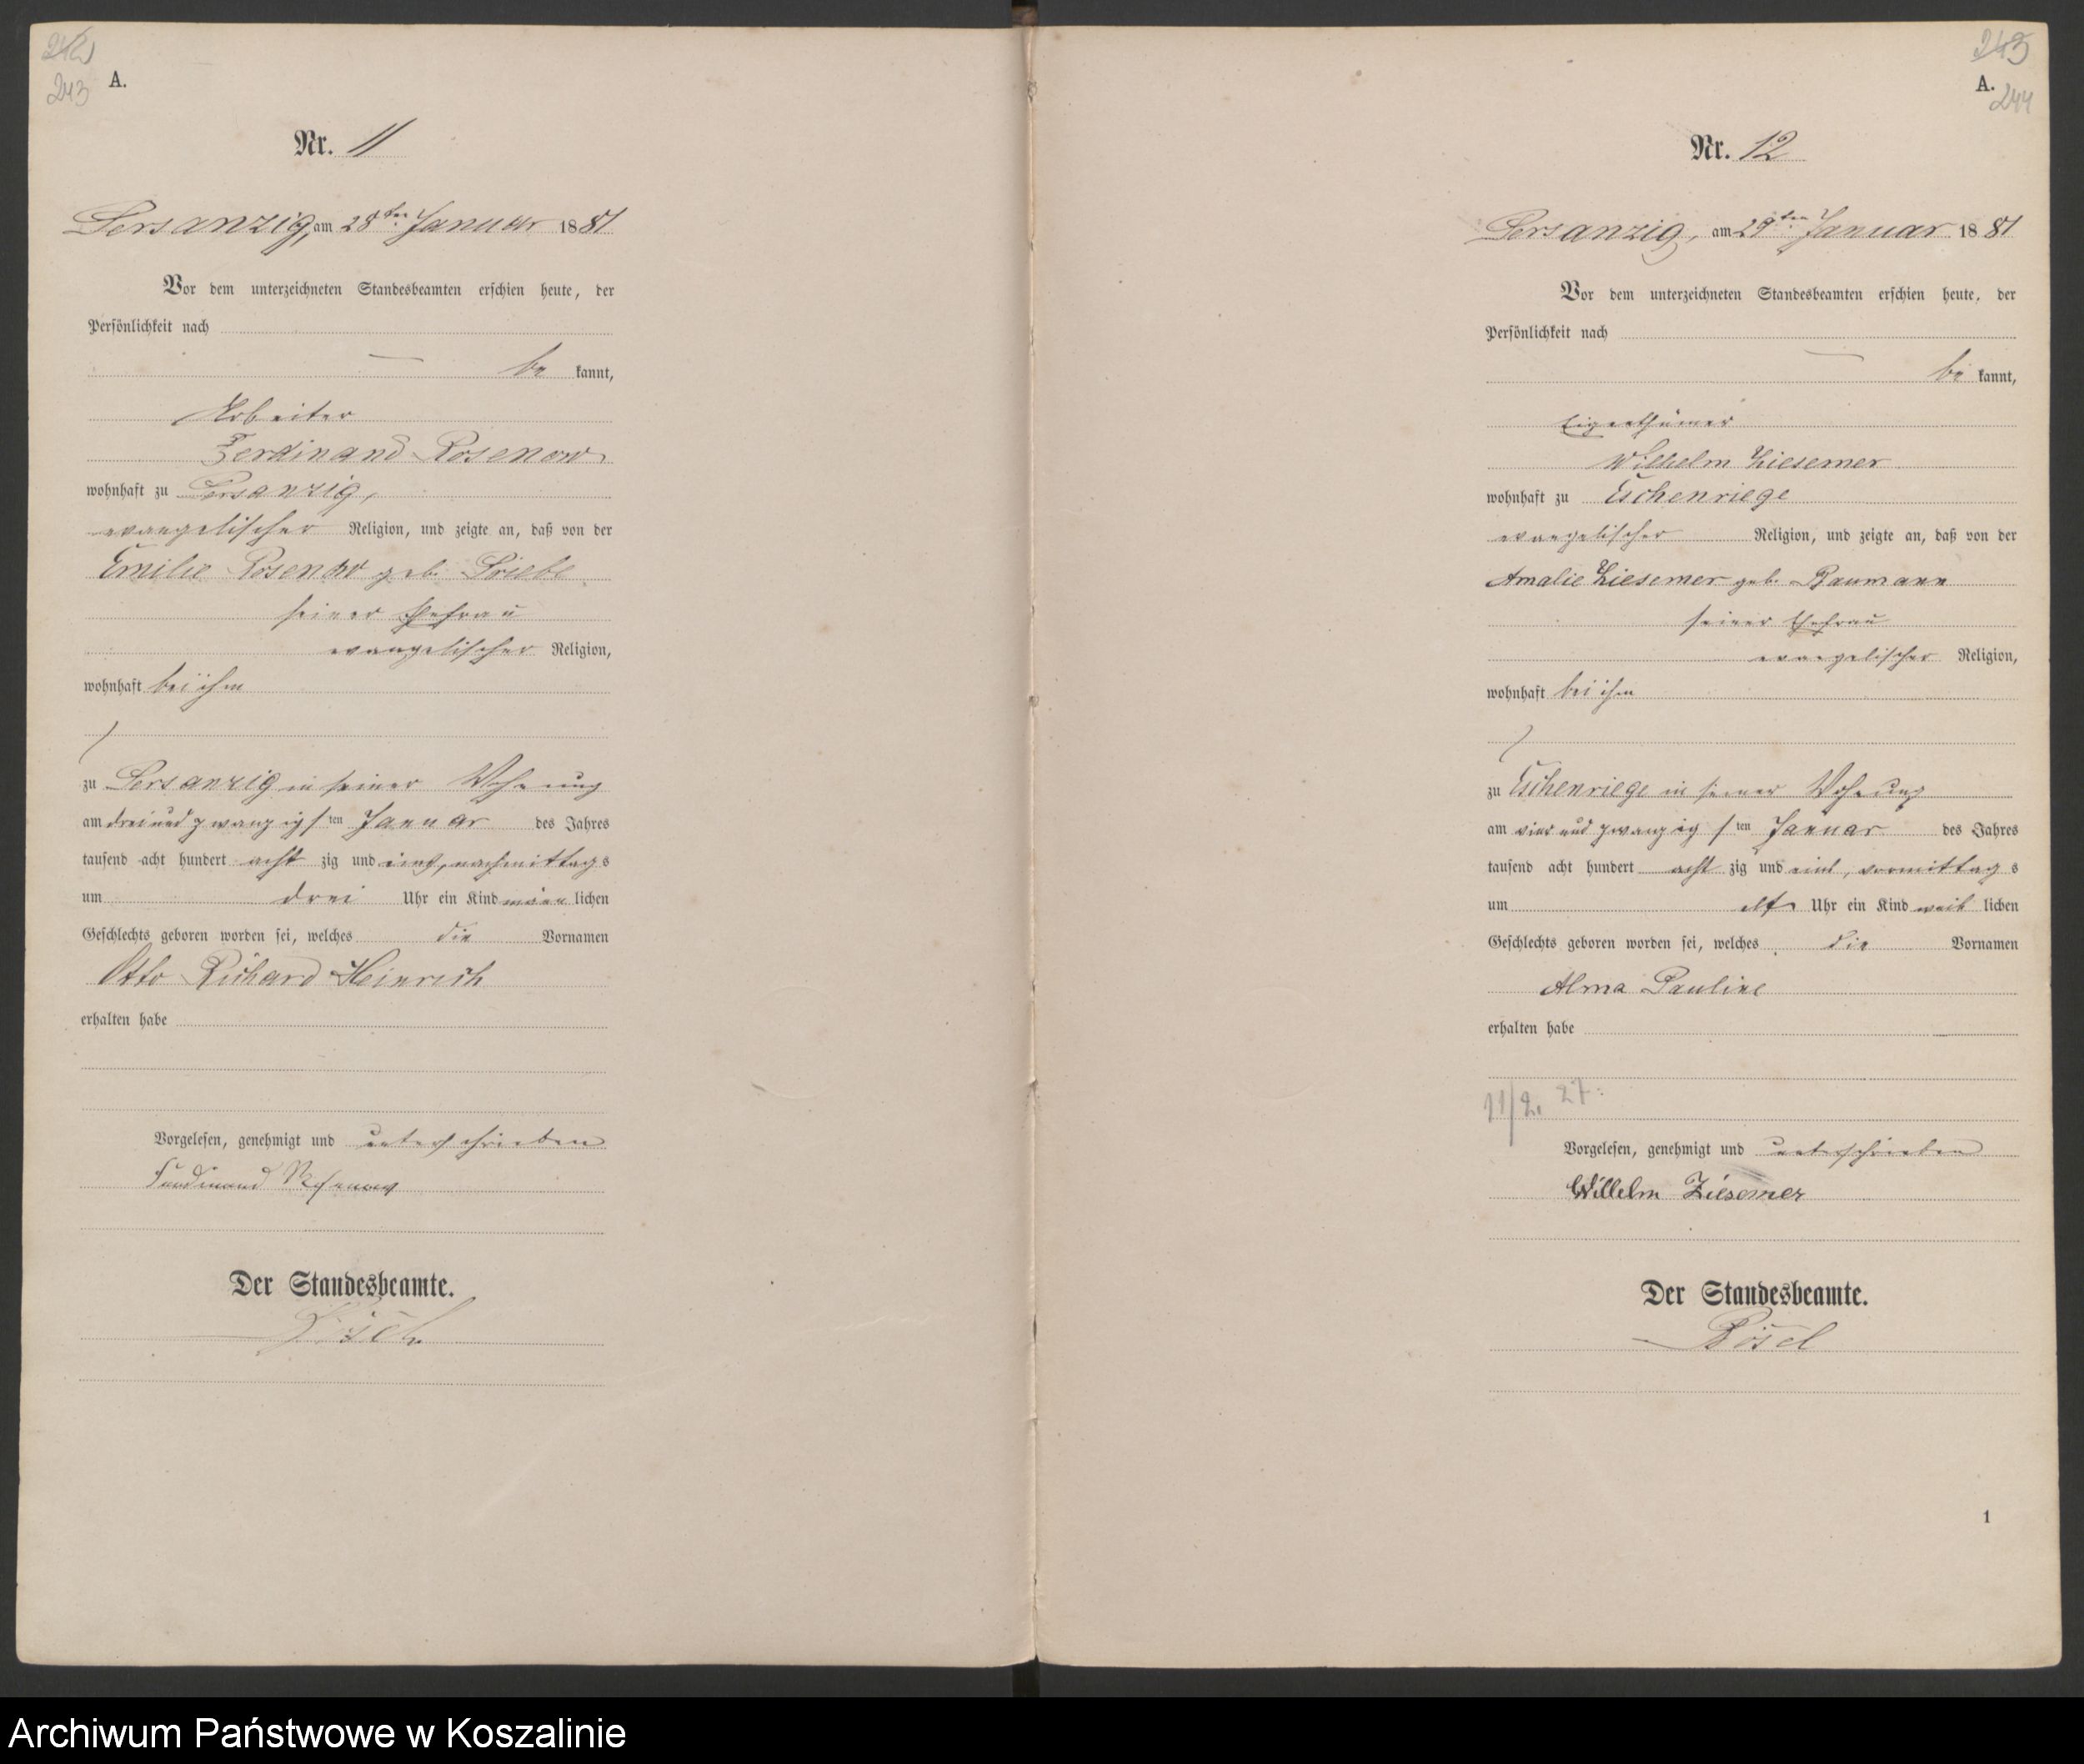 243
A.
Nr. 11
Persanzig, am 28ten Januar 1881
Vor dem unterzeichneten Standesbeamten erschien heute, der
Persönlichkeit nach
be kannt,
Arbeiter
Ferdinand Rosenow
wohnhaft zu Persanzig,
evangelischer Religion, und zeigte an, daß von der
Emilie Rosenow geb. Priebe
seiner Ehefrau
evangelischer Religion,
wohnhaft bei ihm
zu Persanzig in seiner Wohnung
am dreiundzwanzigsten Januar des Jahres
tausend acht hundert acht zig und eins, nachmittags
um drei Uhr ein Kind männ lichen
Geschlechts geboren worden sei, welches die Vornamen
Otto Richard Heinrich
erhalten habe
Vorgelesen, genehmigt und unterschrieben
Ferdinand Rosenow
Der Standesbeamte.
243
A.
244
Nr. 12
Persanzig, am 29ten Januar 1881
Vor dem unterzeichneten Standesbeamten erschien heute, der
Persönlichkeit nach
be kannt,
Eigenthümer
Wilhelm Ziesemer
wohnhaft zu Eschenriege
evangelischer Religion, und zeigte an, daß von der
Amalie Ziesemer geb. Baumann
seiner Ehefrau
evangelischer Religion,
wohnhaft bei ihm
zu Eschenriege in seiner Wohnung
am vierundzwanzigsten Januar des Jahres
tausend acht hundert acht zig und eins, vormittags
um elf Uhr ein Kind weib lichen
Geschlechts geboren worden sei, welches die Vornamen
Alma Pauline
erhalten habe
11/2. 27.
Vorgelesen, genehmigt und unterschrieben
Willelm Ziesemer
Der Standesbeamte.
Pösel
1
Archiwum Państwowe w Koszalinie